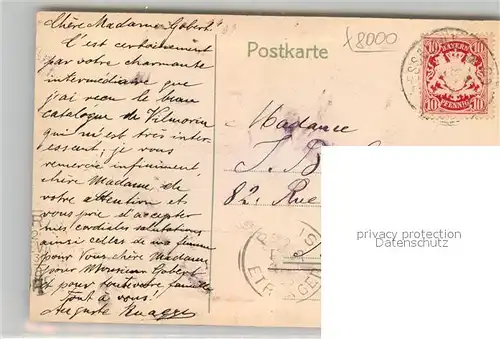 Chère Madame Gobert!
C'est certainement
par votre charmante
intermédiaire que
j'ai reçu le beau
catalogue de Vilmorin
qui m'est très inter-
essant; je vous
remercie infiniment,
chère Madame de
votre attention et
vous prie d'accepter
mes cordiales salutations
ainsi celles de ma femme
pour Vous chère Madame
pour Monsieur Gobert
et pour toute votre famille
Tout à vous!
Auguste
Postkarte
8000
10 BAYERN 10
10 PFENNIG 10
Madame
J. B
82. Rue
privacy protection
www.ansichtskartenversand.com